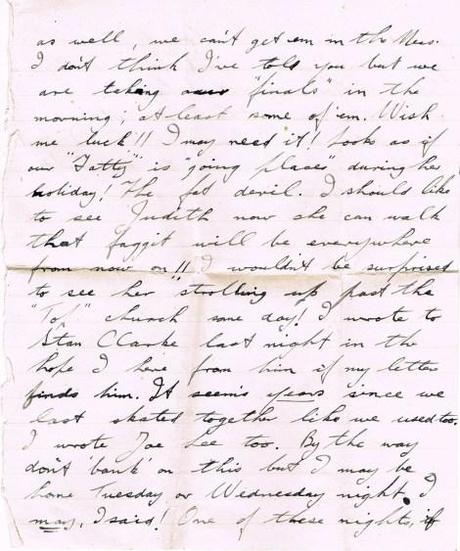 as well, we can't get em in the Mess.
I don't think I've told you but we
are taking our "finals" in the
morning; at least some of 'em. Wish
me luck!! I may need it! Looks as if
our "Fatty" is "going places" during the
holiday! The fat devil. I should like
to see Judith now she can walk
that faggit will be everywhere
from now on!! I wouldn't be surprised
to see her strolling up past the
church some day! I wrote to
Stan Clarke last night in the
hope I hear from him if my letter
finds him. It seems years since we
last skated together like we used too.
I wrote Joe Lee too. By the way
don't 'bank' on this but I may be
home Tuesday or Wednesday night. I
may, I said! One of these nights, if